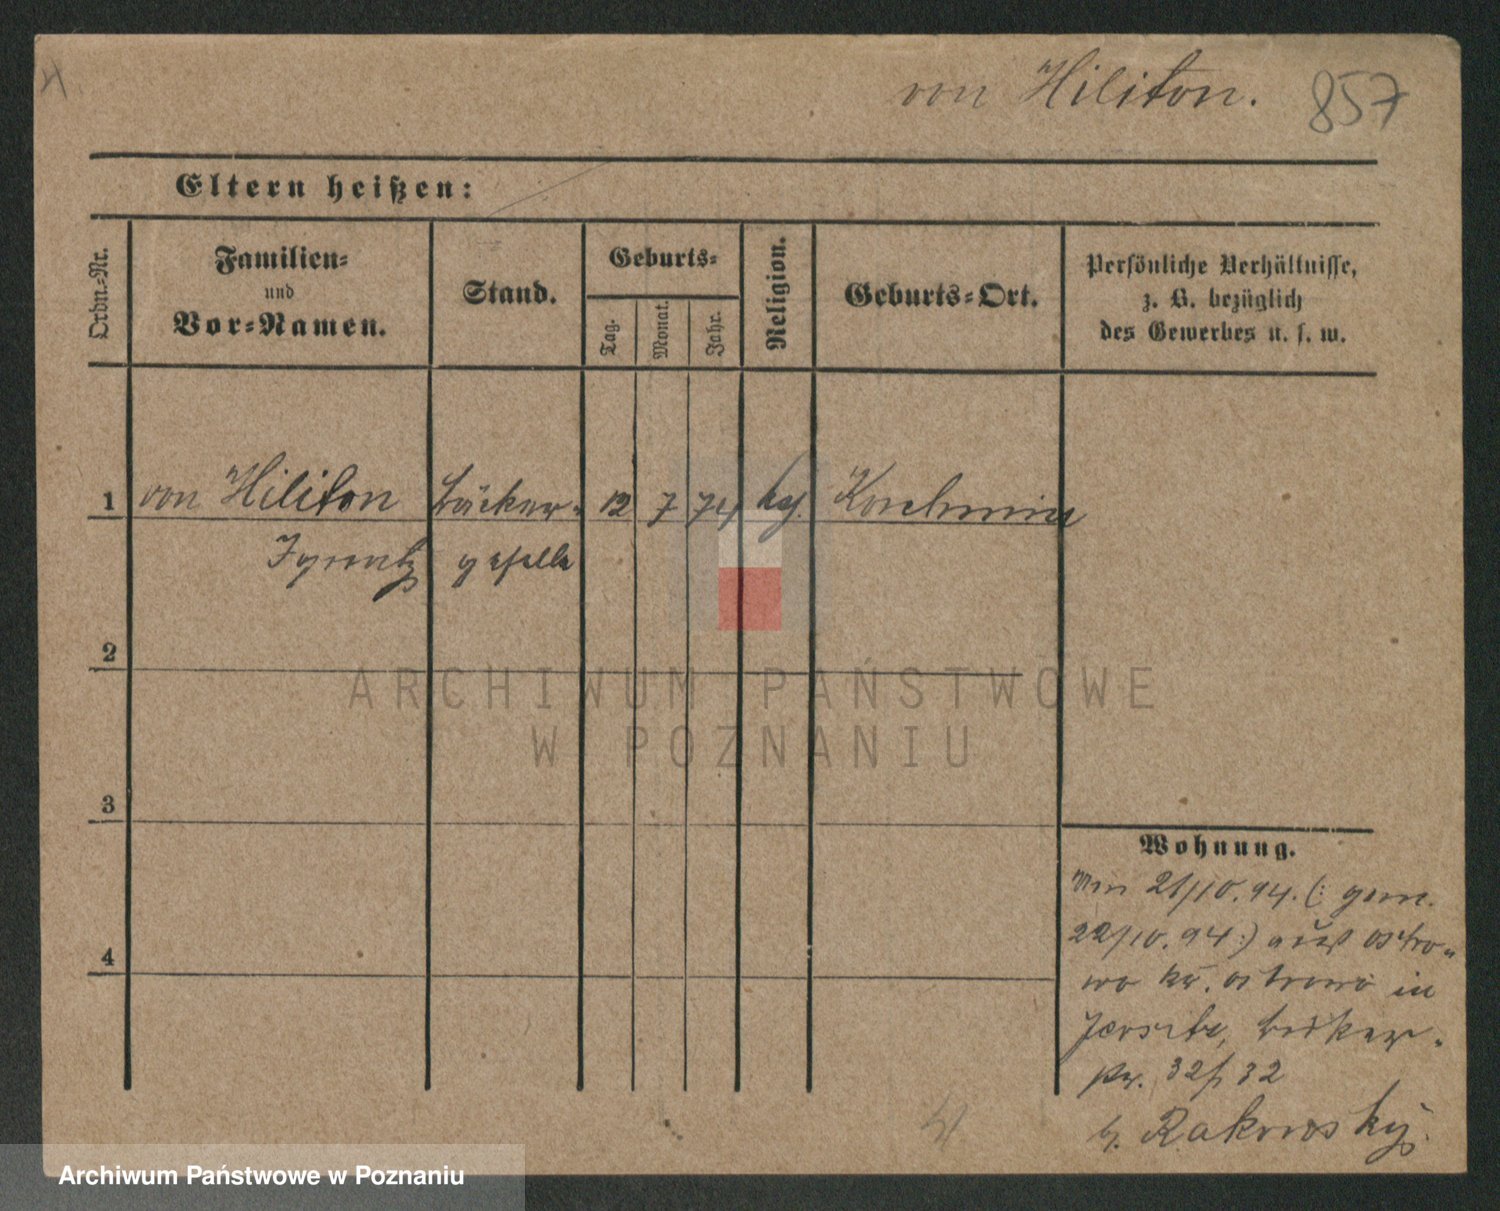 von Hiliton. 857
Eltern heißen:
Ordn.-Nr.
Familien-
und
Vor-Namen.
Stand.
Geburts-
Tag.
Monat.
Jahr.
Religion.
Geburts-Ort.
Persönliche Verhältnisse,
z. B. bezüglich
des Gewerbes u. s. w.
1 von Hiliton Bäcker- 12 7 74
geselle
2
3
4
Wohnung.
21/10. 94. (: gem.
22/10. 94 :) aus Ostro-
wo Kr. Ostrowo in
Jersitz,
32 b. Rakowsky.
ARCHIWUM PAŃSTWOWE
W POZNANIU
Archiwum Państwowe w Poznaniu